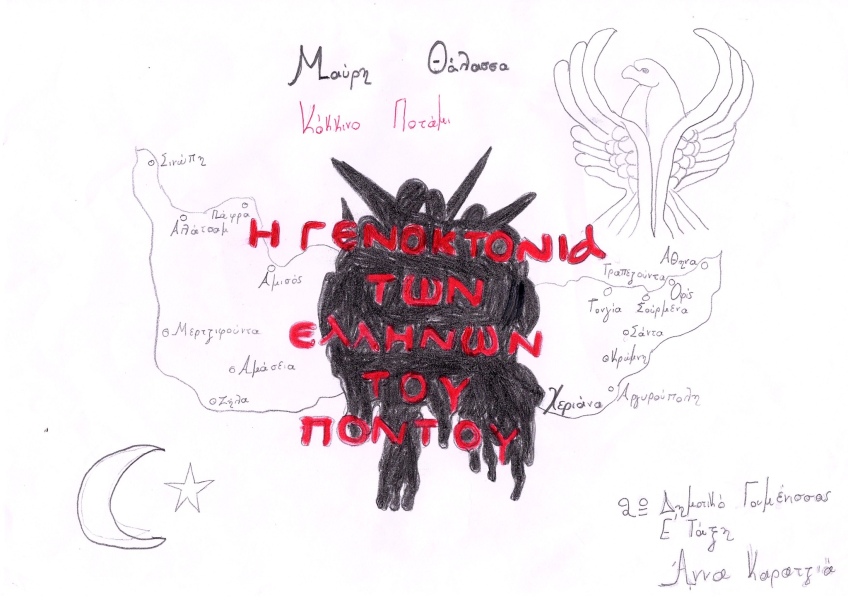 Μαύρη Θάλασσα
Κόκκινο Ποτάμι
Σινώπη
Πάφρα
Αλάτσαμ
Αμισός
Μερτζιφούντα
Αμάσεια
Ζήλα
Η ΓΕΝΟΚΤΟΝΙΑ
ΤΩΝ
ΕΛΛΗΝΩΝ
ΤΟΥ
ΠΟΝΤΟΥ
Αθήνα
Τραπεζούντα
Οφίς
Τονγία
Σούρμενα
Σάντα
Κρώμνη
Χεριάνα
Αργυρούπολη
2ο Δημοτικό Γουμένισσας
Ε Τάξη
Άννα